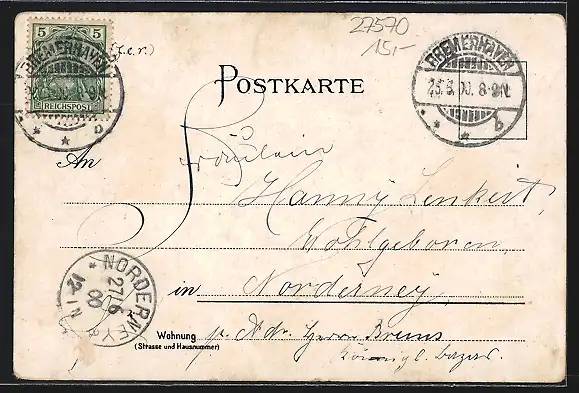 27570
15,-
5 5
REICHSPOST
BREMERHAVEN
BREMERHAVEN
8-9N.
b
POSTKARTE
An
Fräulein
Hanny Lenkeit
Wohlgeboren
in Norderney
NORDERNEY
27/6
00
Wohnung
(Strasse und Hausnummer)
p. Adr. Herrn Bruns